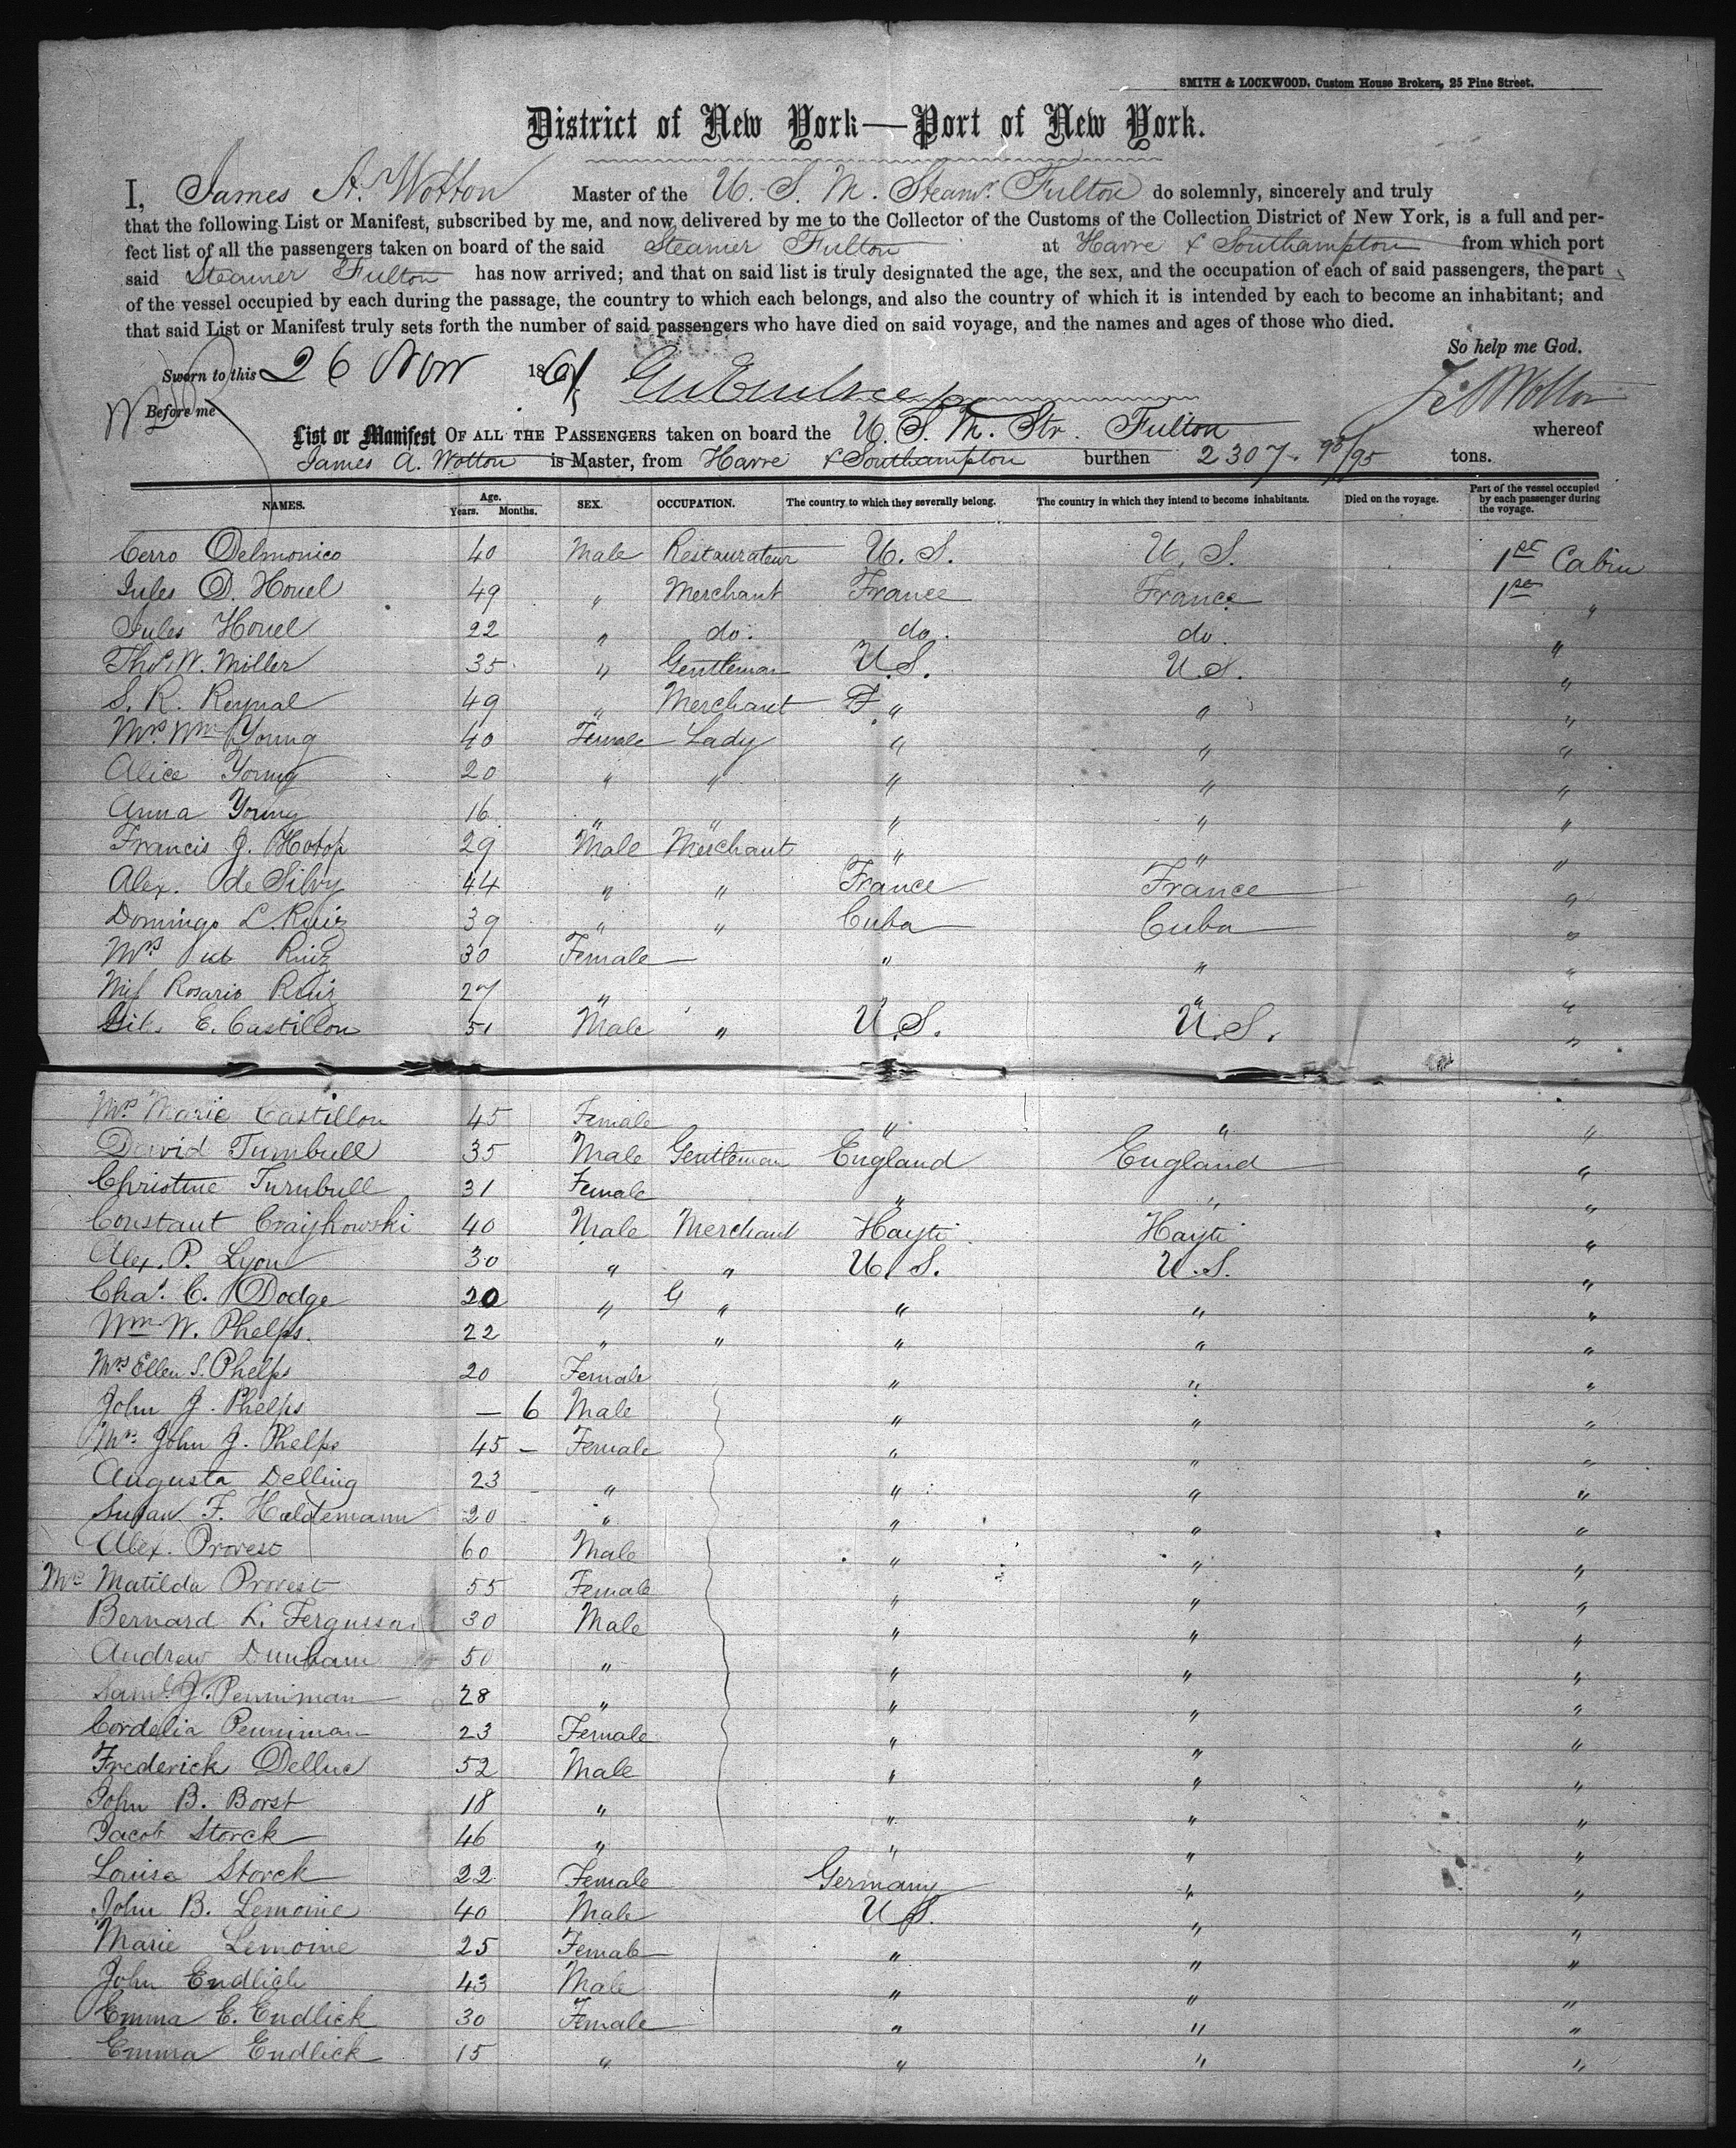 SMITH & LOCKWOOD, Custom House Brokers, 25 Pine Street.
District of New York—Port of New York.
I, James A. Wotton Master of the U. S. M. Steamr. Fulton do solemnly, sincerely and truly
that the following List or Manifest, subscribed by me, and now delivered by me to the Collector of the Customs of the Collection District of New York, is a full and per-
fect list of all the passengers taken on board of the said Steamer Fulton at Havre & Southampton from which port
said Steamer Fulton has now arrived; and that on said list is truly designated the age, the sex, and the occupation of each of said passengers, the part
of the vessel occupied by each during the passage, the country to which each belongs, and also the country of which it is intended by each to become an inhabitant; and
that said List or Manifest truly sets forth the number of said passengers who have died on said voyage, and the names and ages of those who died.
So help me God.
Sworn to this 26 Nov 1861
Before me
J A Wotton
List or Manifest OF ALL THE PASSENGERS taken on board the U. S. M. Str. Fulton whereof
James A. Wotton is Master, from Havre & Southampton burthen 2307. 93/95 tons.
NAMES. Age. Years. Months. SEX. OCCUPATION. The country to which they severally belong. The country in which they intend to become inhabitants. Died on the voyage. Part of the vessel occupied by each passenger during the voyage.
Cerro Delmonico 40 Male Restaurateur U. S. U. S. 1st Cabin
Jules D. Houel 49 " Merchant France France 1st "
Jules Houel 22 " do. do. do. "
Thos. W. Miller 35 " Gentleman U.S. U.S. "
S. R. Reynal 49 " Merchant F. " " "
Mrs. Wm Young 40 Female Lady " " "
Alice Young 20 " " " " "
Anna Young 16 " " " " "
Francis J. Hotop 29 Male Merchant " " "
Alex. de Silvy 44 " " France France "
Domingo L. Ruiz 39 " " Cuba Cuba "
Mrs Ruiz 30 Female " " "
Miss Rosario Ruiz 27 " " " "
E. Castillon 51 Male " U.S. U.S. "
Mrs Marie Castillon 45 Female " " "
David Turnbull 35 Male Gentleman England England "
Christine Turnbull 31 Female " " "
Constant Craijkowski 40 Male Merchant Hayti Hayti "
Alex. P. Lyon 30 " " U. S. U. S. "
Chas. C. Dodge 20 " G " " " "
Wm W. Phelps. 22 " " " " "
Mrs Ellen S. Phelps 20 Female " " "
John J. Phelps — 6 Male " " "
Mrs John J. Phelps 45 — Female " " "
Augusta Delling 23 " " " "
Susan F. Haldemann 20 " " " "
Alex. Provest 60 Male " " "
Mrs Matilda Provest 55 Female " " "
Bernard L. Fergusson 30 Male " " "
Andrew Dunham 50 " " " "
Saml. J. Penniman 28 " " " "
Cordelia Penniman 23 Female " " "
Frederick Delluc 52 Male " " "
John B. Borst 18 " " " "
Jacob Storck 46 " " " "
Louisa Storck 22 Female Germany " "
John B. Lemoine 40 Male U S. " "
Marie Lemoine 25 Female " " "
John Endlich 43 Male " " "
Emma E. Endlick 30 Female " " "
Emma Endlick 15 " " " "